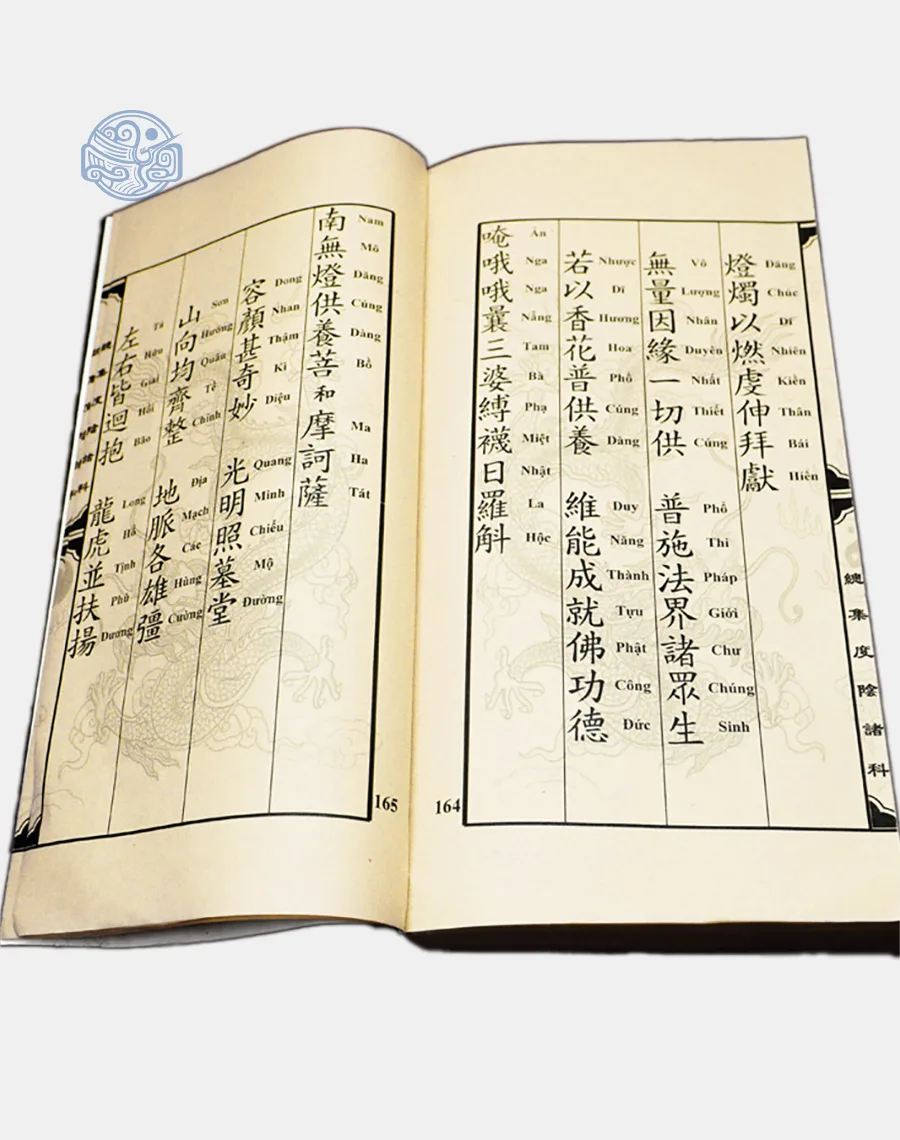 燈燭以燃虔伸拜獻
Đăng Chúc Dĩ Nhiên Kiền Thân Bái Hiến
無量因緣一切供 普施法界諸眾生
Vô Lượng Nhân Duyên Nhất Thiết Cúng Phổ Thi Pháp Giới Chư Chúng Sinh
若以香花普供養 維能成就佛功德
Nhược Dĩ Hương Hoa Phổ Cúng Dàng Duy Năng Thành Tựu Phật Công Đức
唵哦哦曩三婆縛襪日羅斛
Án Nga Nga Nẵng Tam Bà Phạ Miệt Nhật La Hộc
總集度陰諸科
164
南無燈供養菩和摩訶薩
Nam Mô Đăng Cúng Dàng Bồ Ma Ha Tát
容顏甚奇妙 光明照墓堂
Dong Nhan Thậm Kì Diệu Quang Minh Chiếu Mộ Đường
山向均齊整 地脈各雄彊
Sơn Hướng Quân Tề Chỉnh Địa Mạch Các Hùng Cường
左右皆迴抱 龍虎並扶揚
Tả Hữu Giai Hồi Bão Long Hổ Tịnh Phù Dương
165